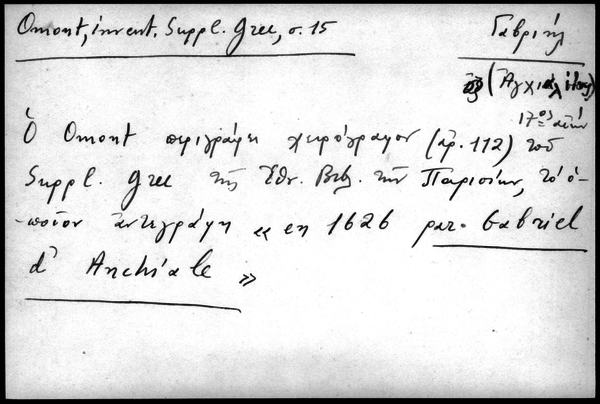 Omont, invent. Suppl. Grec, σ. 15
Γαβριήλ
(Ἀγχιαλίτης)
17ος αἰών
Ὁ Omont περιγράφει χειρόγραφον (ἀρ. 112) τοῦ
Suppl. Grec τῆς Ἐθν. Βιβ. τῶν Παρισίων, τὸ ὁ-
-ποῖον ἀντεγράφη « en 1626 par Gabriel
d' Anchiale »